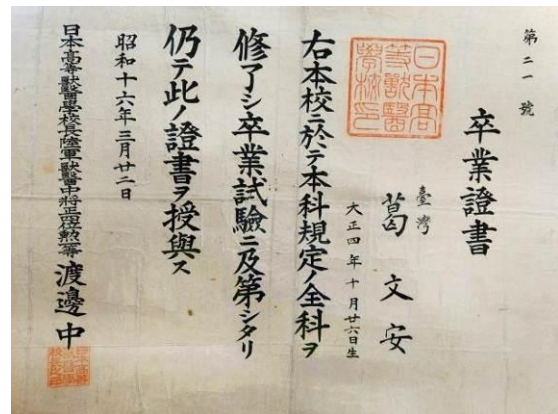 第二一號
卒業證書
臺灣
葛文安
大正四年十月廿六日生
日本高等獸醫學校印
右本校ニ於テ本科規定ノ全科ヲ
修了シ卒業試驗ニ及第シタリ
仍テ此ノ證書ヲ授與ス
昭和十六年三月廿二日
日本高等獸醫學校長陸軍獸醫中將正四位勲二等渡邊中